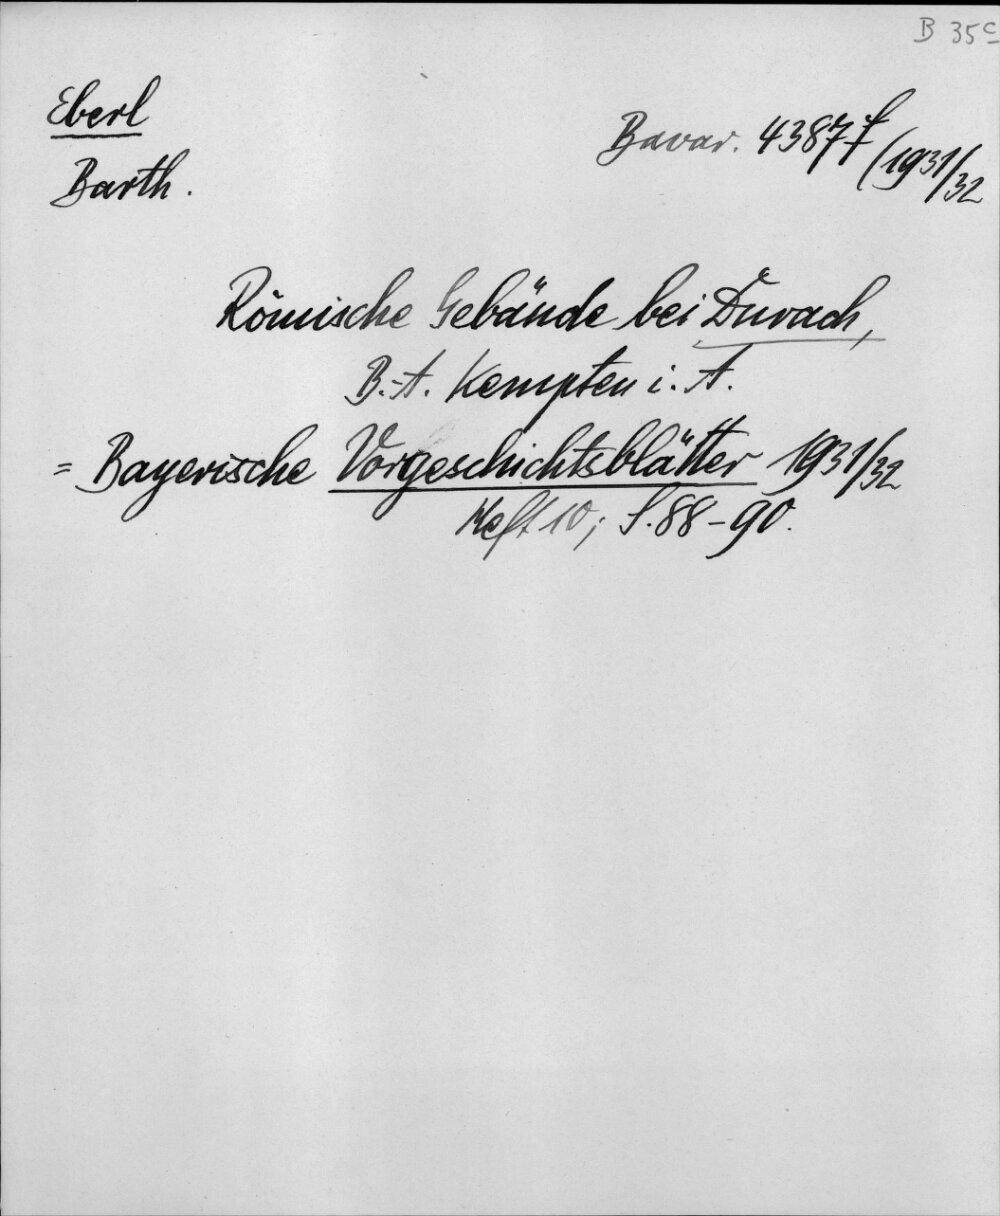 B 35c
Eberl
Barth.
Bavar. 4387 f (1931/32
Römische Gebäude bei Durach,
B.-A. Kempten i. A.
= Bayerische Vorgeschichtsblätter 1931/32
Heft 10; S. 88-90.